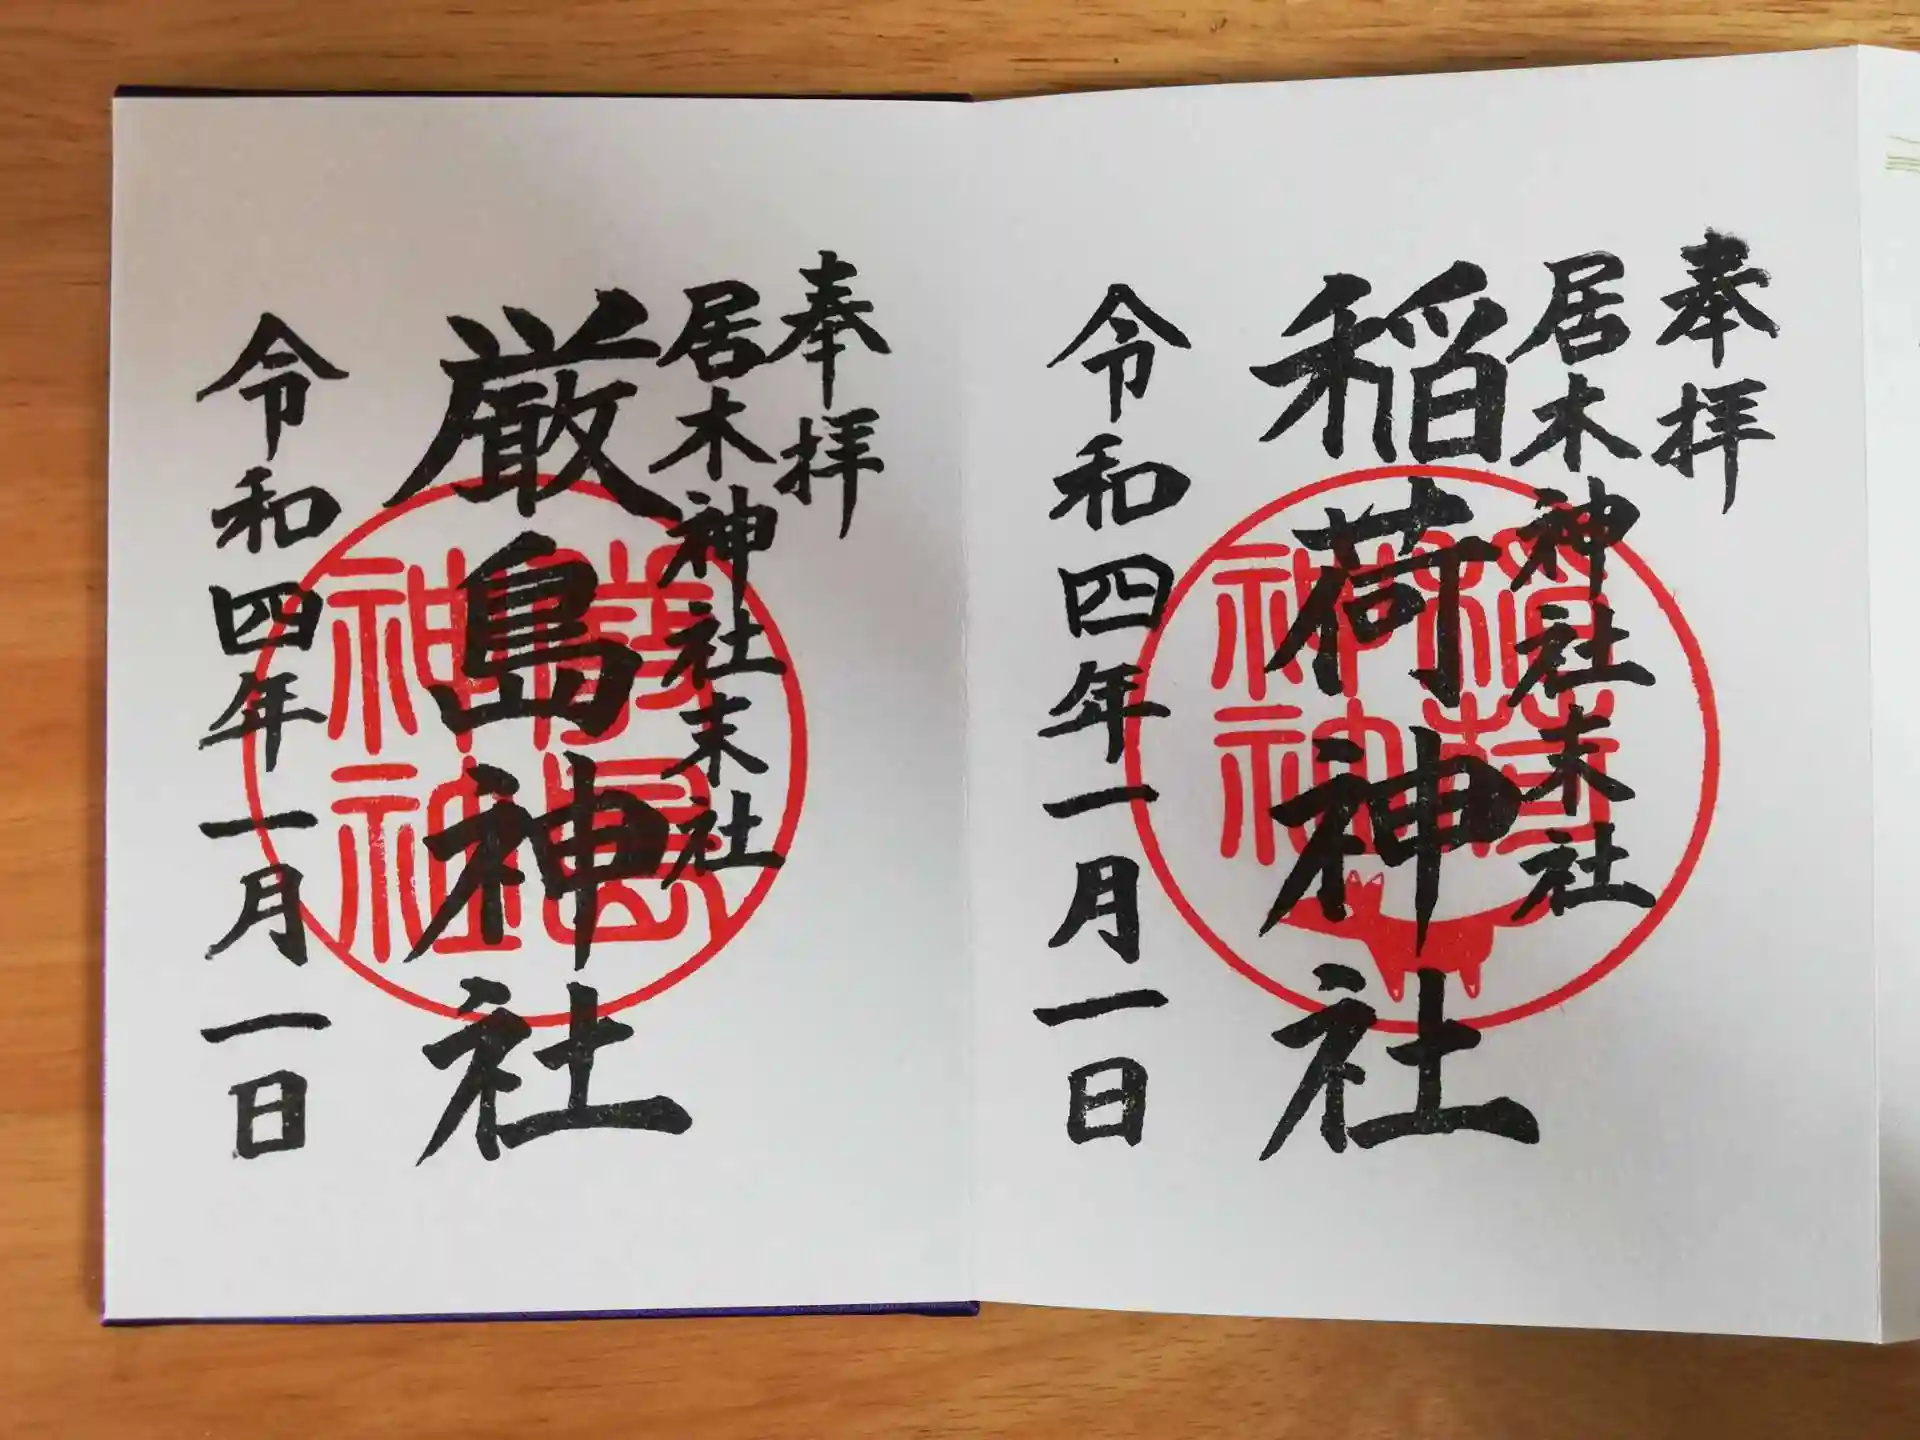 奉拝
居木神社末社
稲荷神社
令和四年一月一日
稲荷神社
奉拝
居木神社末社
厳島神社
令和四年一月一日
厳島神社